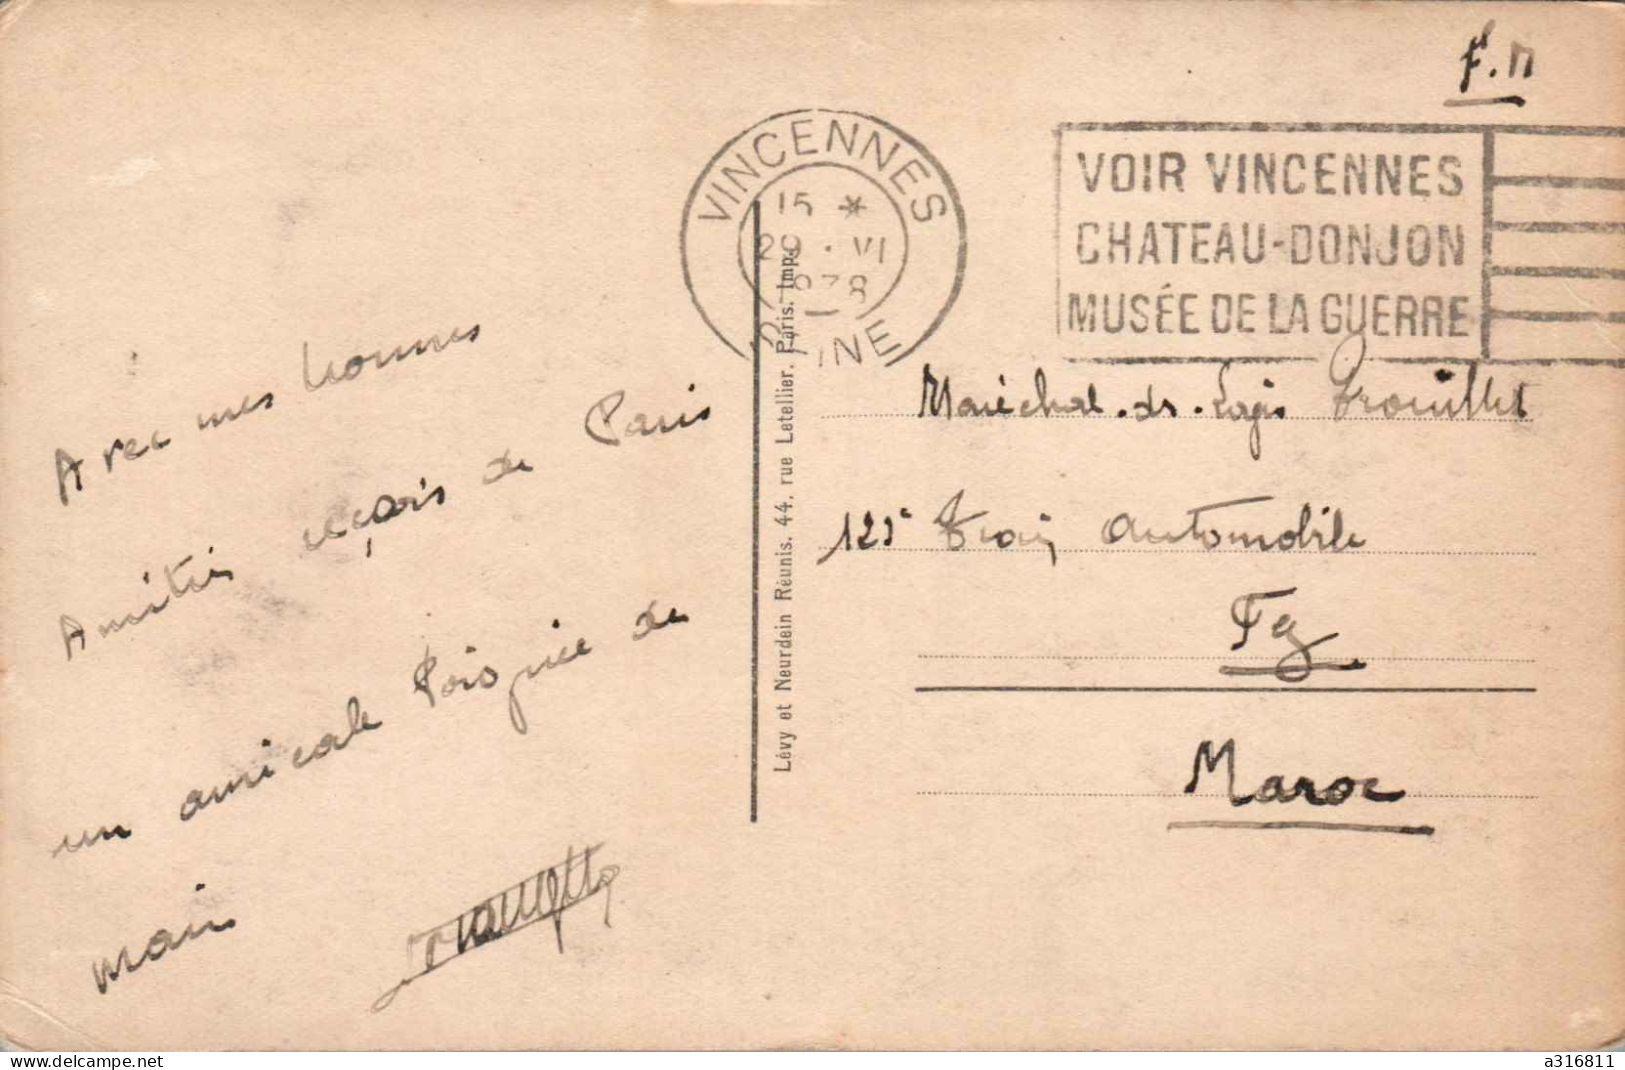 F.M
VINCENNES
15 *
29 · VI
1938
SEINE
VOIR VINCENNES
CHATEAU-DONJON
MUSÉE DE LA GUERRE
Avec mes bonnes
Amitiés reçois de Paris
un amicale Poignée de
main
Lévy et Neurdein Réunis. 44. rue Letellier. Paris. Imp.
Maréchal.des.Logis Trouillet
Train Automobile
Fez
Maroc
delcampe.net
a316811